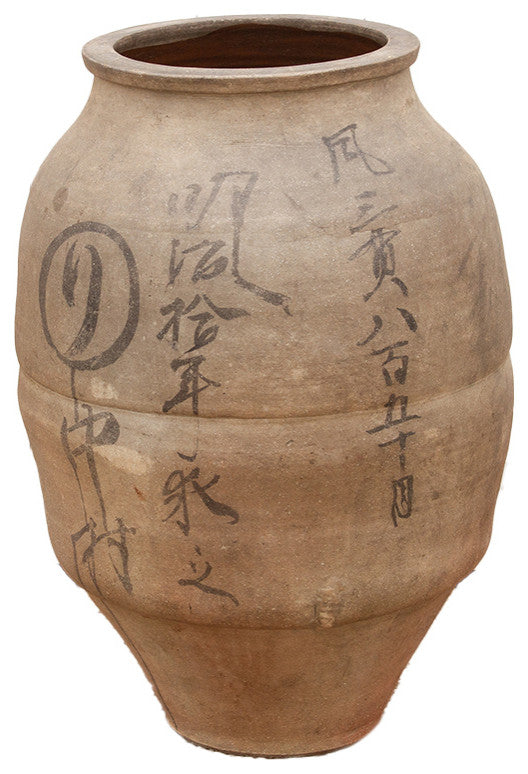 風三貫八百五十目
明治拾年求之
り中村